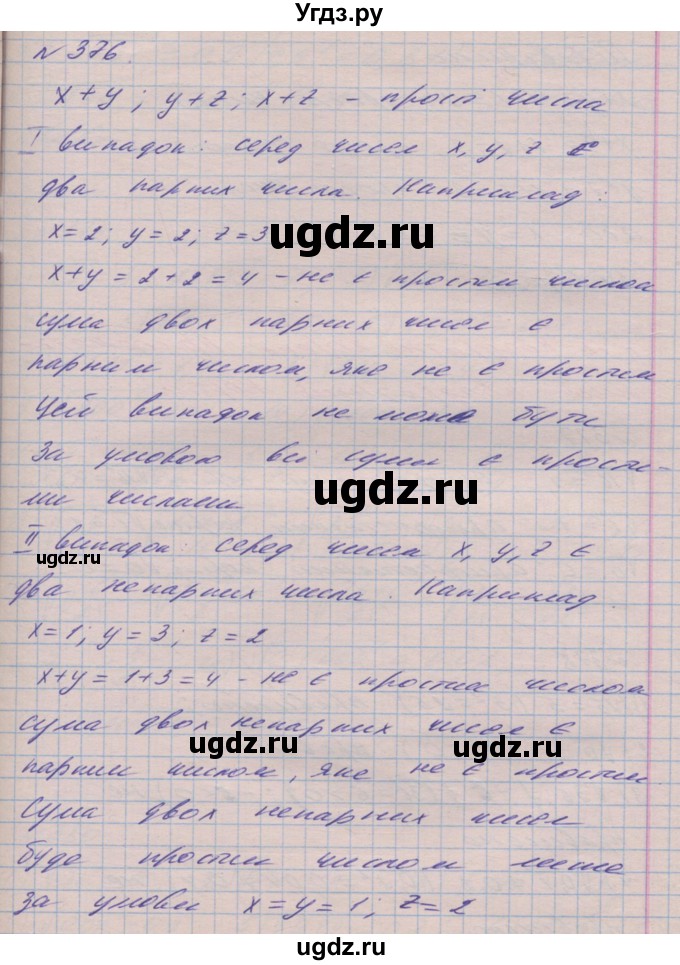 Угдз.ру
№ 376.
x+y; y+z; x+z – прості числа
I випадок: серед чисел x, y, z є
два парних числа. Наприклад:
x=2; y=2; z=3
x+y=2+2=4 – не є простим числом
сума двох парних чисел є
парним числом, яке не є простим
Цей випадок не може бути
За умовою всі суми є прости-
ми числами
II випадок: серед чисел x, y, z є
два непарних числа. Наприклад
x=1; y=3; z=2
x+y=1+3=4 – не є простим числом
сума двох непарних чисел є
парним числом, яке не є простим
Сума двох непарних чисел
буде простим числом лише
за умови x=y=1; z=2
ugdz.ru
ugdz.ru
ugdz.ru
ugdz.ru
ugdz.ru
ugdz.ru